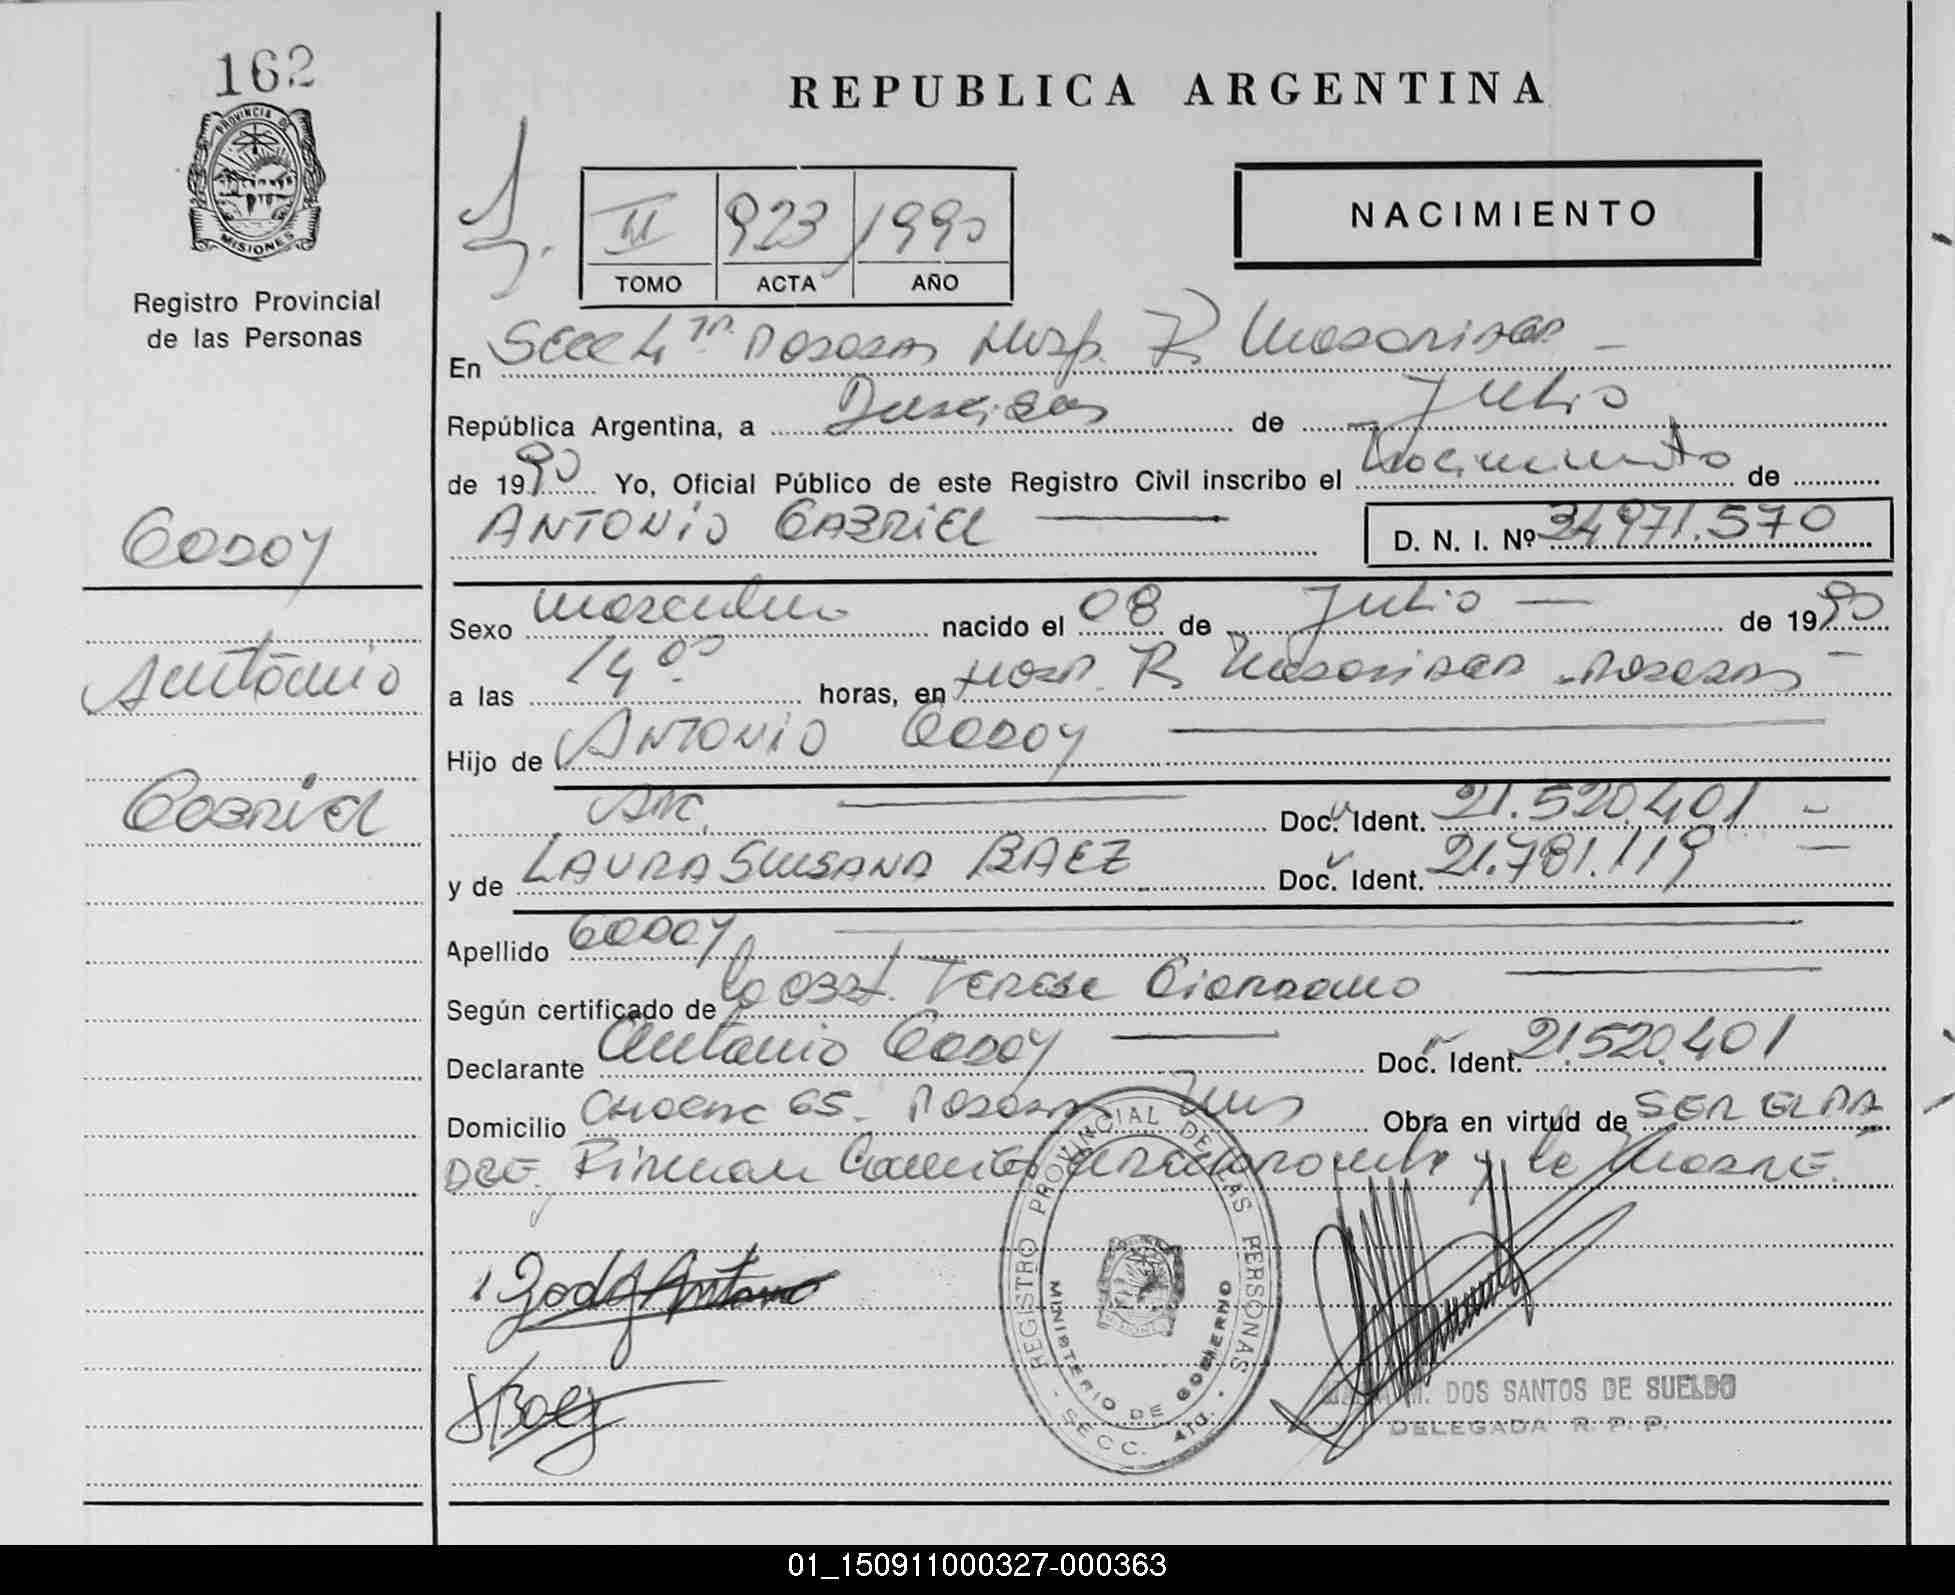 162
PROVINCIA DE
MISIONES
Registro Provincial
de las Personas
GODOY
Antonio
Gabriel
REPUBLICA ARGENTINA
II 923 1990
TOMO ACTA AÑO
NACIMIENTO
En Secc 4ta Posadas Hosp. R Madariaga
República Argentina, a Dieciséis de Julio
de 1990 Yo, Oficial Público de este Registro Civil inscribo el Nacimiento de
ANTONIO GABRIEL D. N. I. Nº 34971.570
Sexo Masculino nacido el 08 de Julio de 1990
a las 14 horas, en Hosp. R Madariaga - Posadas -
Hijo de ANTONIO GODOY
Arg. Doc. Ident. 21.520.401 -
y de LAURA SUSANA BAEZ Doc. Ident. 21.781.119 -
Apellido GODOY
Según certificado de la Obst. Terese Giordano
Declarante Antonio Godoy Doc. Ident. 21.520.401
Domicilio Chacra 65. Posadas Mns Obra en virtud de SER EL PA
DRE, Firman
y la Madre.
Godoy Antonio
Baez
REGISTRO PROVINCIAL DE LAS PERSONAS
MINISTERIO DE GOBIERNO
- SECC. 4TA. -
M. DOS SANTOS DE SUELDO
DELEGADA R. P. P.
01_150911000327-000363